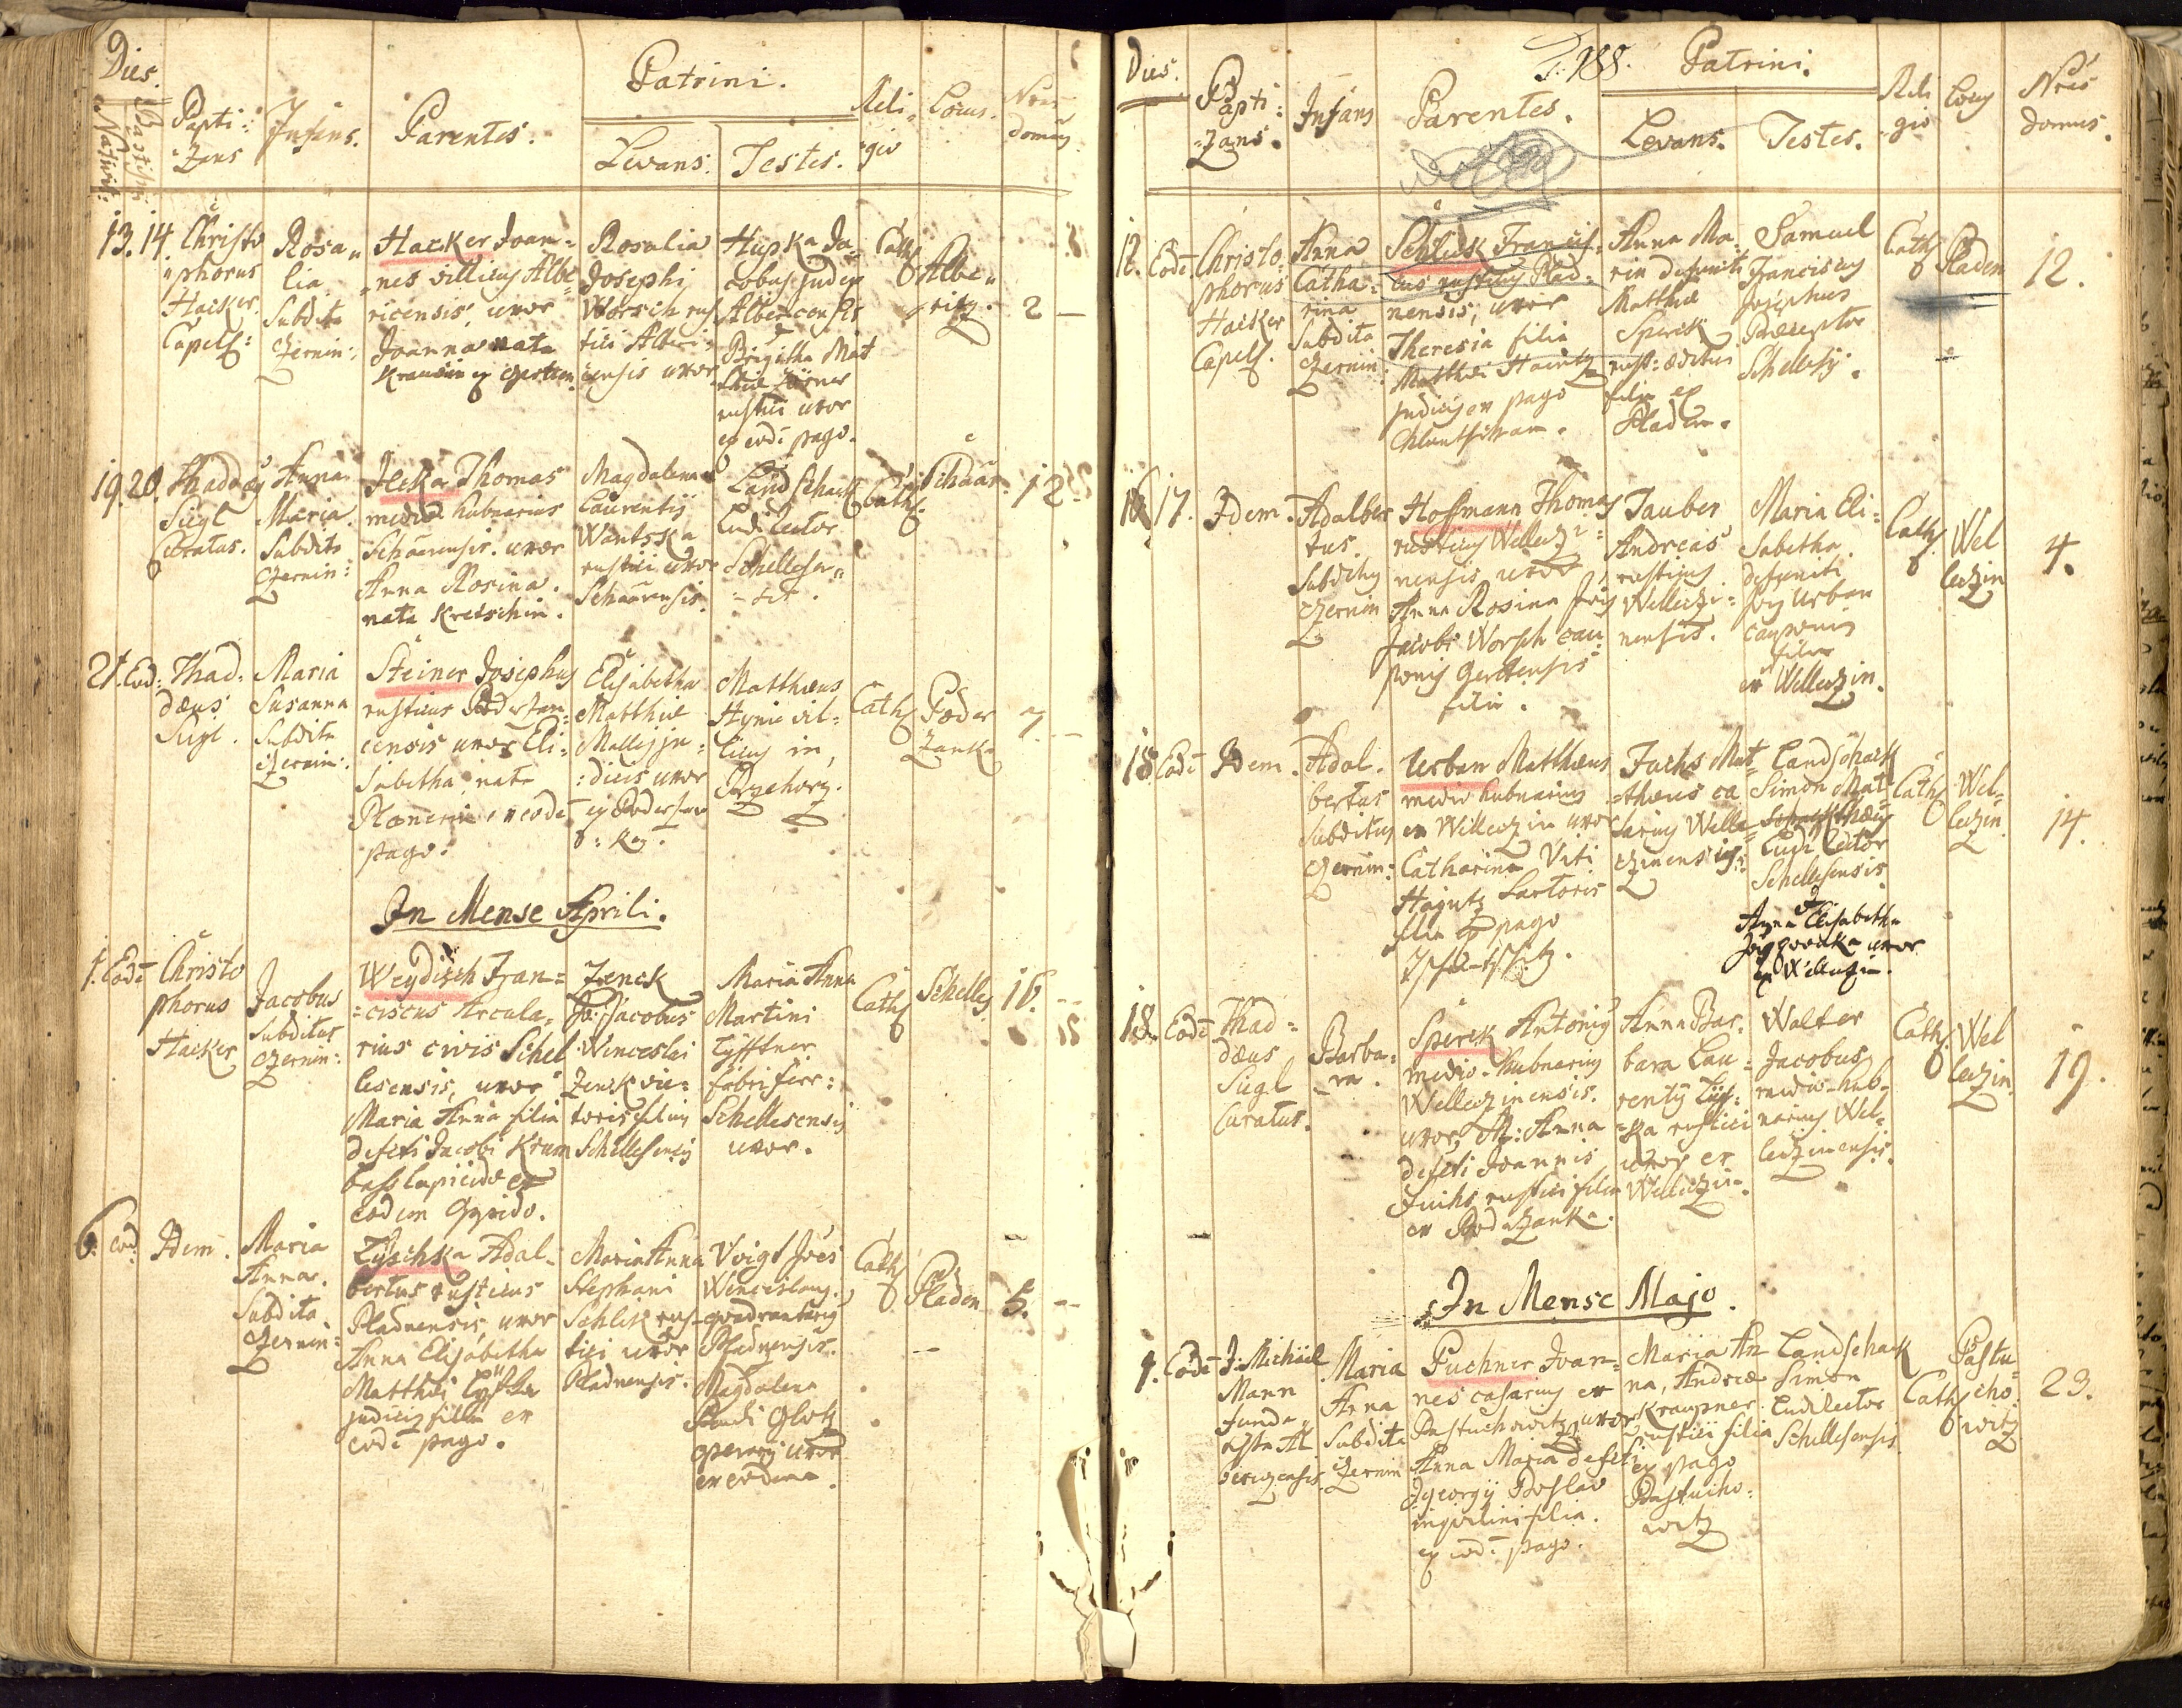 Dies.
Nativit: Baptismi
Bapti:
zans
Infans.
Parentes.
Patrini.
Levans. Testes.
Reli-
gio
Locus.
Nrus
domus
13. 14.
Christo
phorus
Hacker
Capell:
Rosa-
lia
Subdita
Czernin:
Hacker Joan=
nes villicus Albe
ricensis, uxor
Joanna nata
Rosalia
Josephi
Worsch rus
tici Alberi:
censis uxor
Hupka Ja=
cobus judex
Albericensis
&
Brigitha Mat
rustici uxor
ex eod: pago.
Cath:
Albe-
ritz.
2
19. 20.
Thadaeus
Siegl
Curatus.
Anna
Maria
Subdita
Czernin:
Jecka Thomas
medio hubnarius
Schaarensis. uxor
Anna Rosina.
nata Kretschin.
Magdalena
Laurentij
Wantska
rustici uxor
Schaarensis.
Landschack
Ludi Rector
Schellesen=
Cath:
Schaar.
12
21. Eod:
Thad:
daeus
Siegl.
Maria
Susanna
Subdita
Czernin:
Steiner Josephus
rusticus Podersan=
censis uxor Eli=
sabetha nata
ex eod:
pago.
Elisabetha
Matthiae
ju=
:dicis uxor
Matthaeus
Hynie vil=
licus in
Przehorz.
Cath:
Poder
zanka
7.
In Mense Aprili.
1. Eod:
Christo
phorus
Hacker
Jacobus
Subditus
Czernin:
Weydisch Fran=
=ciscus Arcula,
rius civis Schel
lesensis, uxor
Maria Anna filia
defcti Jacobi Krum
bass lapicidae ex
eodem oppido.
Zenck
Jacobus
Wenceslai
Zenck vie:
toris filius
Schellesensis
Maria Anna
Martini
Lyfftner
fabri ferr:
Schellesensis
uxor.
Cath:
Schelles
16.
6. eod:
Idem.
Maria
Anna.
Subdita
Czernin:
Lyschka Adal=
bertus rusticus
Pladnensis, uxor
Anna Elisabetha
Matthaei
judicis filia ex
eod: pago.
Maria Anna
Stephani
Schlik rus-
tici uxor
Pladnensis.
Voigt Jões
Wenceslaus
quadrantarius
Pladnensis.
Magdalena
Glotz
operarij uxor
ex eodem.
Cath:
Pladen
5.
Dies.
Bapti:
zans.
Infans
Parentes.
1788. Patrini.
Levans. Testes.
Reli
gio
Locus
Nrus
domus.
12. Eod:
Christo:
phorus
Hacker
Capell.
Anna
Catha=
rina
Subdita
Czernin
Schlick Francis=
cus rusticus Plad=
nensis, uxor
Theresia filia
Matthaei
judicis ex pago
Anna Ma
ria defuncti
Matthiae
Sperk
filia ex
Pladen.
Samuel
Franciscus
Josephus
Praeceptor
Cath:
Pladen
12.
16. 17.
Idem.
Adalber
tus.
Subditus
Czernin
Hoffmann Thomas
rusticus Welletzi=
nensis uxor
Anna Rosina
Jacobi Worsch cau
ponis
filia.
Tauber
Andreas
rusticus
Welletzi=
nensis.
Maria Eli=
sabetha
defuncti
Urban
cauponis
filia
ex Welletzin.
Cath:
Wel
letzin
4.
18. Eod:
Idem.
Adal.
bertus
Subditus
Czernin:
Urban Matthaeus
medio hubnarius
ex Welletzin uxor
Catharina Viti
Hajnitz Sartoris
filia ex pago
Fuchs Mat=
=thaeus ca
sarius Welle
tzinensis.
Landschack
Simon
Ludi Rector
Schellesensis
&
Anna Elisabetha
uxor
ex Welletzin.
Cath:
Wel=
letzin
14.
18. Eod:
Thad=
daeus
Siegl
Curatus.
Barba=
ra.
Sperck Antonius
medio-hubnarius
Welletzinensis.
uxor, M: Anna
defcti Joannis
Fuchs rustici filia
ex Podezanka.
Anna Bar.
bara Lau=
rentij
rustici
uxor ex
Welletzin.
Walter
Jacobus
medio-hub-
narius Wel=
letzinensis.
Cath:
Wel
letzin
19.
In Mense Majo.
4. Eod:
J: Michäel
Mann
Maria
Anna
Subdita
Czernin
Puchner Joan=
nes casarius ex
Pastuchowitz, uxor
Anna Maria defcti
Georgij
inquilini filia.
ex eod: pago.
Maria An
na, Andreae
Kraupner
rustici filia
ex pago
Pastucho:
witz
Landschack
Simon
Ludirector
Schellesensis
Cath:
Pastu=
cho:
witz
23.